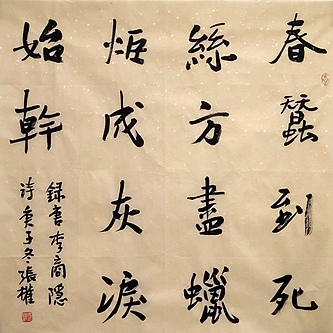 春蠶到死
絲方盡蠟
炬成灰淚
始幹
録唐李商隱
诗庚子冬張權